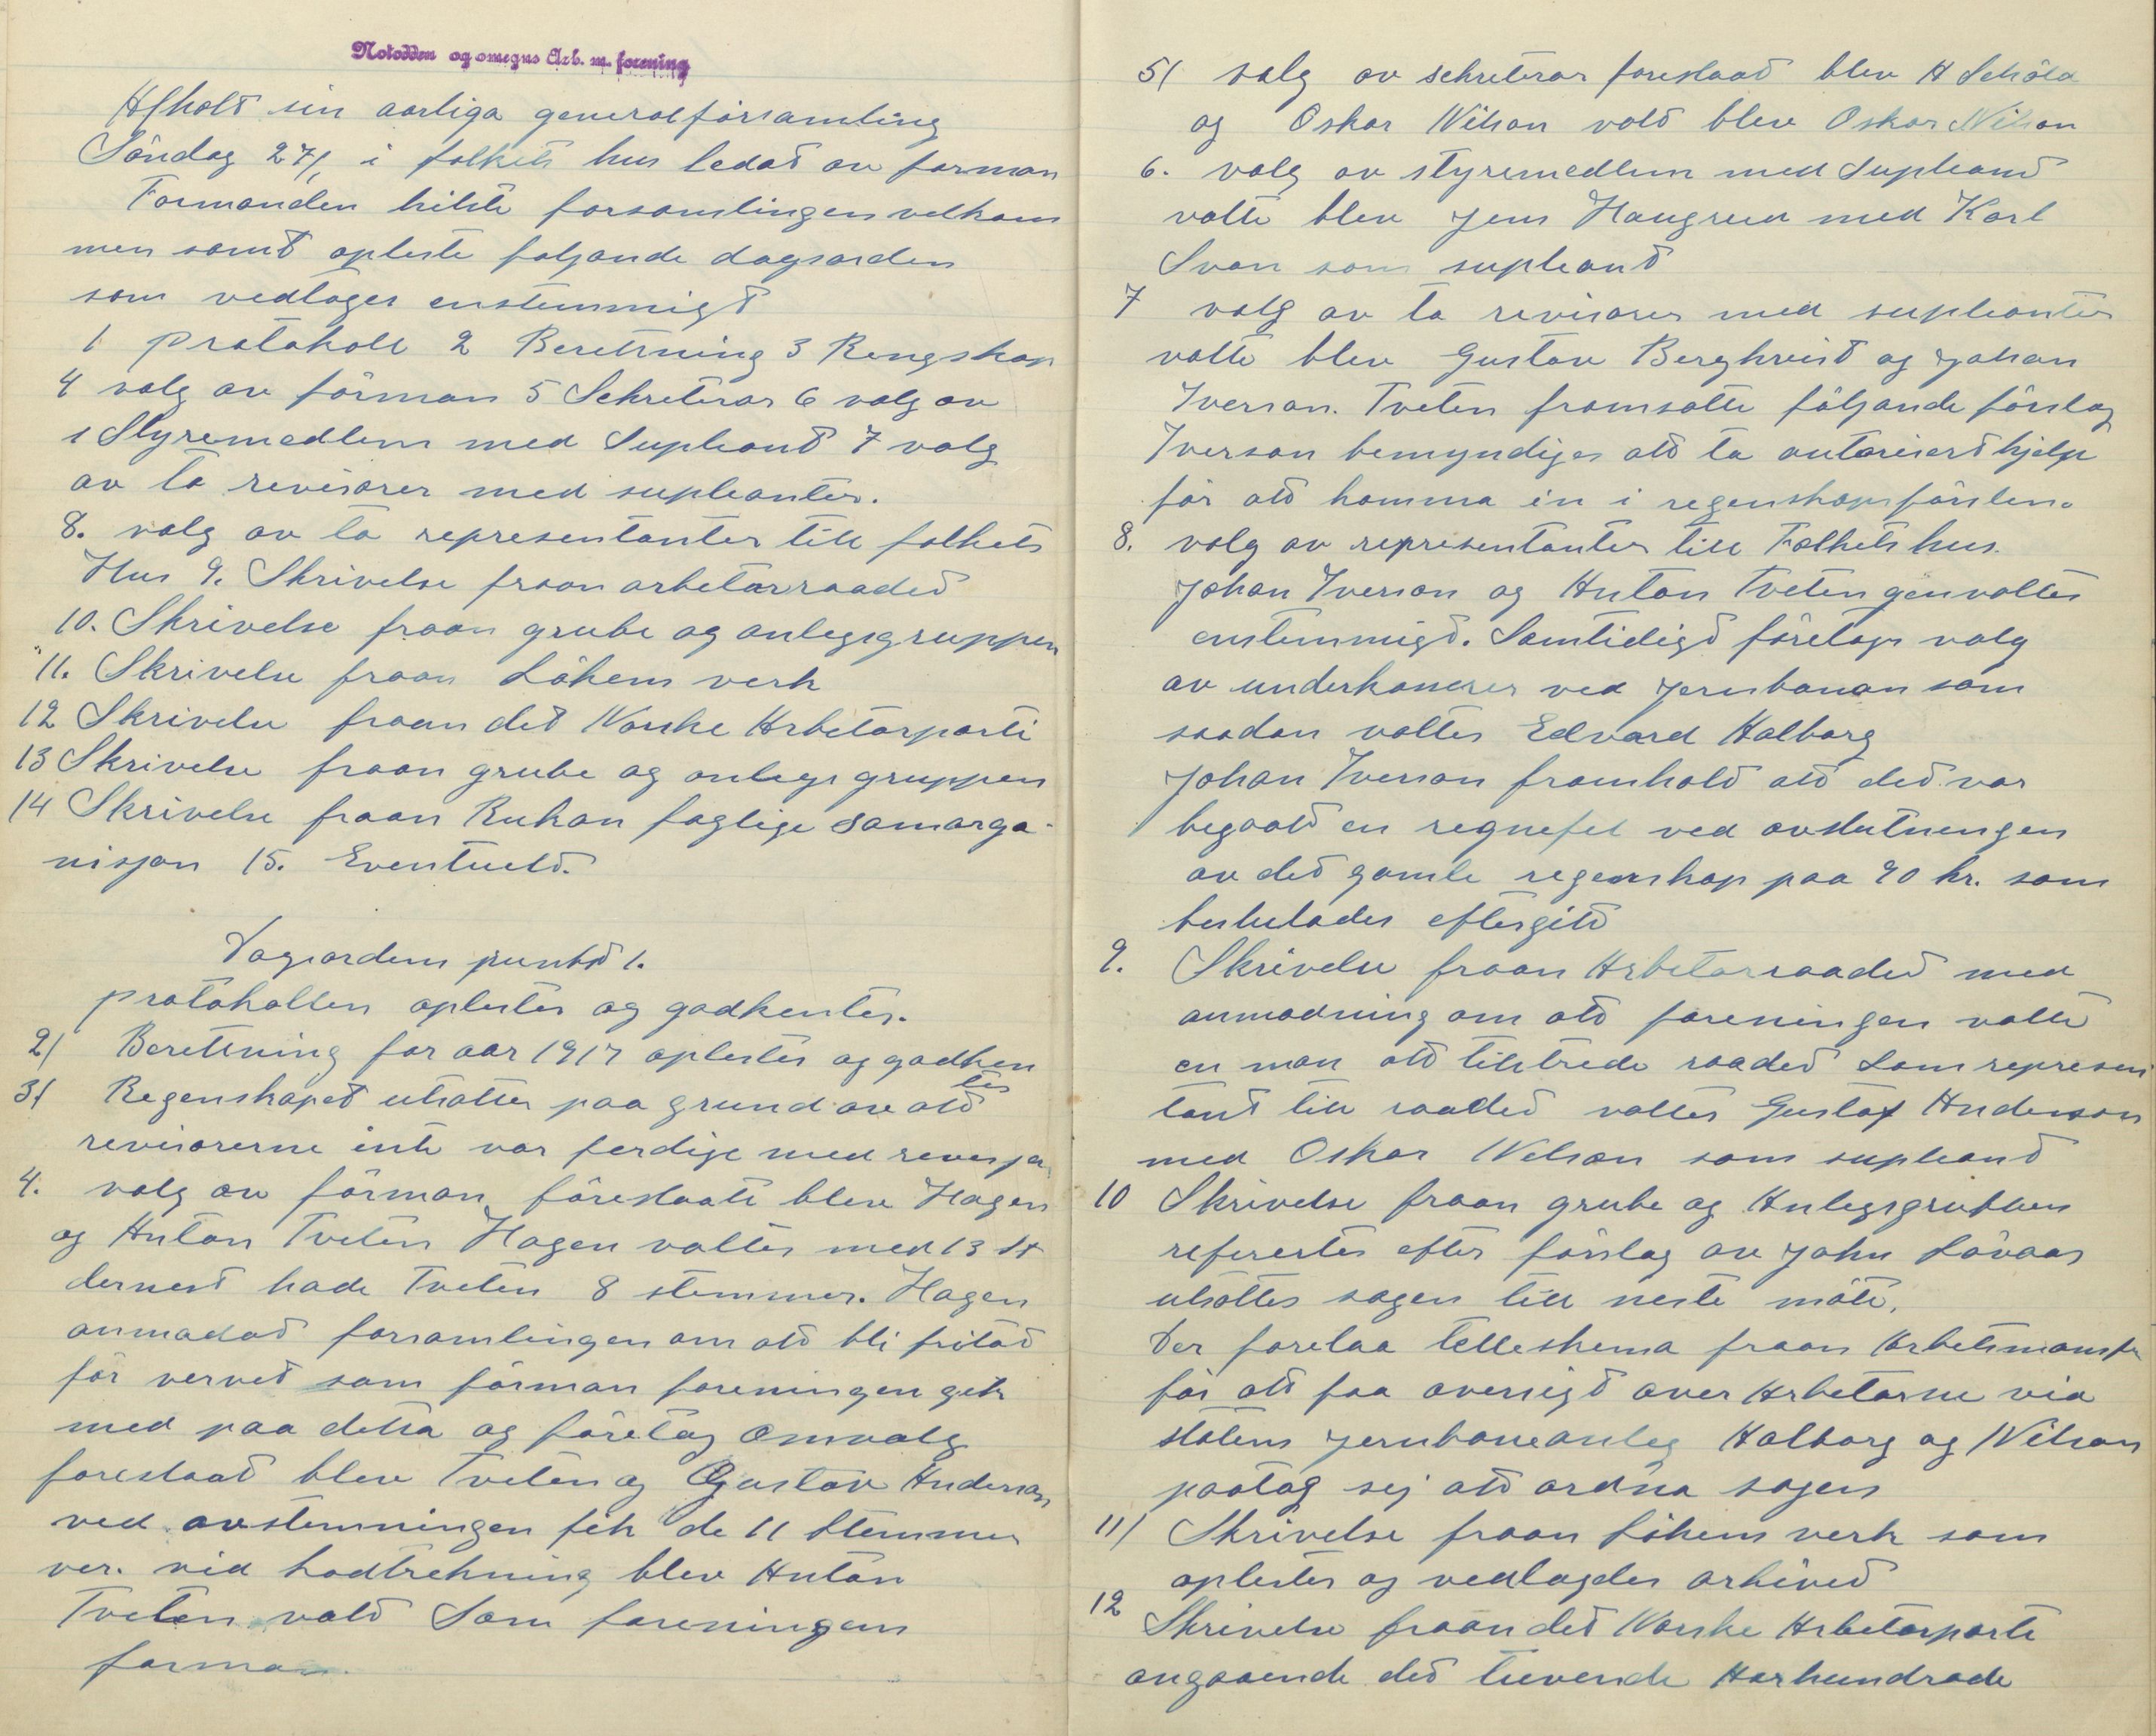 Notodden og omegns Arb. m. forening
Afholt sin aarliga generalförsamling
Söndag 27/1 i folkets hus ledat av forman
Formanden hilste forsamlingen velkom
men samt opleste foljande dagsorden
som vedtoges enstemmigt
1 protokoll 2 Beretning 3 Rengskap
4 valg av förman 5 Sekreterar 6 valg av
1 Styremedlem med Supleant 7 valg
av to revisorer med supleanter.
8. valg av to representanter till folkets
Hus 9. Skrivelse fraan arbetarraaded
10. Skrivelse fraan grube og anlegsgruppen
11. Skrivelse fraan Lökens verk
12 Skrivelse fraan det Norske Arbetarparti
13 Skrivelse fraan grube og anlegs gruppen
14 Skrivelse fraan Rukan faglige samorga-
nisjon 15. Eventuelt.
Dagsordens punkt 1.
protokollen oplestes og godkentes.
2/ Beretning for aar 1917 oplestes og godken
tes
3/ Regenskapet utsattes paa grund av att
revisorerne inte var ferdige med revisjon
4. valg av förman föreslaatt blev Hagen
og Anton Tveten Hagen valtes med 13 st
dernest hade Tveten 8 stemmer. Hagen
anmodad forsamlingen om att bli fritat
för vervet som förman foreningen gek
med paa detta og företog omvalg
foreslaat blev Tveten og Gustav Anderson
ved avstemningen fek de 11 stemmer
ver. vid lodtrekning blev Anton
Tveten vald Som foreningens
forman.
5/ valg av sekreterar foreslaat blev A Sköld
og Oskar Nilson vald blev Oskar Nilson
6. valg av styremedlem med Supleant
valte blev Jens Haugrud med Karl
Svan som supleant
7 valg av to revisorer med supleanter
valte blev Gustav Berghvist og Johan
Iverson. Tveten framsatte följande förslag
Iverson bemyndiges att ta autorisert hjelp
för att komma in i regenskapsförslen.
8. valg av representanter till Folkets hus.
Johan Iverson og Anton Tveten genvaltes
enstemmigt. Samtidigt företogs valg
av underkaserer ved Jernbanan som
saadan valtes Edvard Halborg
Johan Iverson framholt att det var
begaatt en regnefel ved avslutningen
av det gamle regenskap paa 90 kr. som
beslutades eftergitt
9. Skrivelse fraan Arbetarraadet med
anmodning om att foreningen valte
en man att tiltrede raadet Som represen
tant till raadet valtes Gustaf Anderson
med Oskar Nelson som supleant
10 Skrivelse fraan grube og Anlegsgruppen
referertes efter förslag av John Lövaas
utsattes sagen till neste möte.
Der forelaa telleskema fraan Arbetsmansfr
för att faa oversigt over Arbetarne vid
statens jernbaneanleg Halborg og Nilson
paatog sej att ordna sagen
11/ Skrivelse fraan Lökens verk som
oplestes og vedlagdes arkivet
12 Skrivelse fraan det Norske Arbetarparte
angaaende det tuevende Aarhundrade